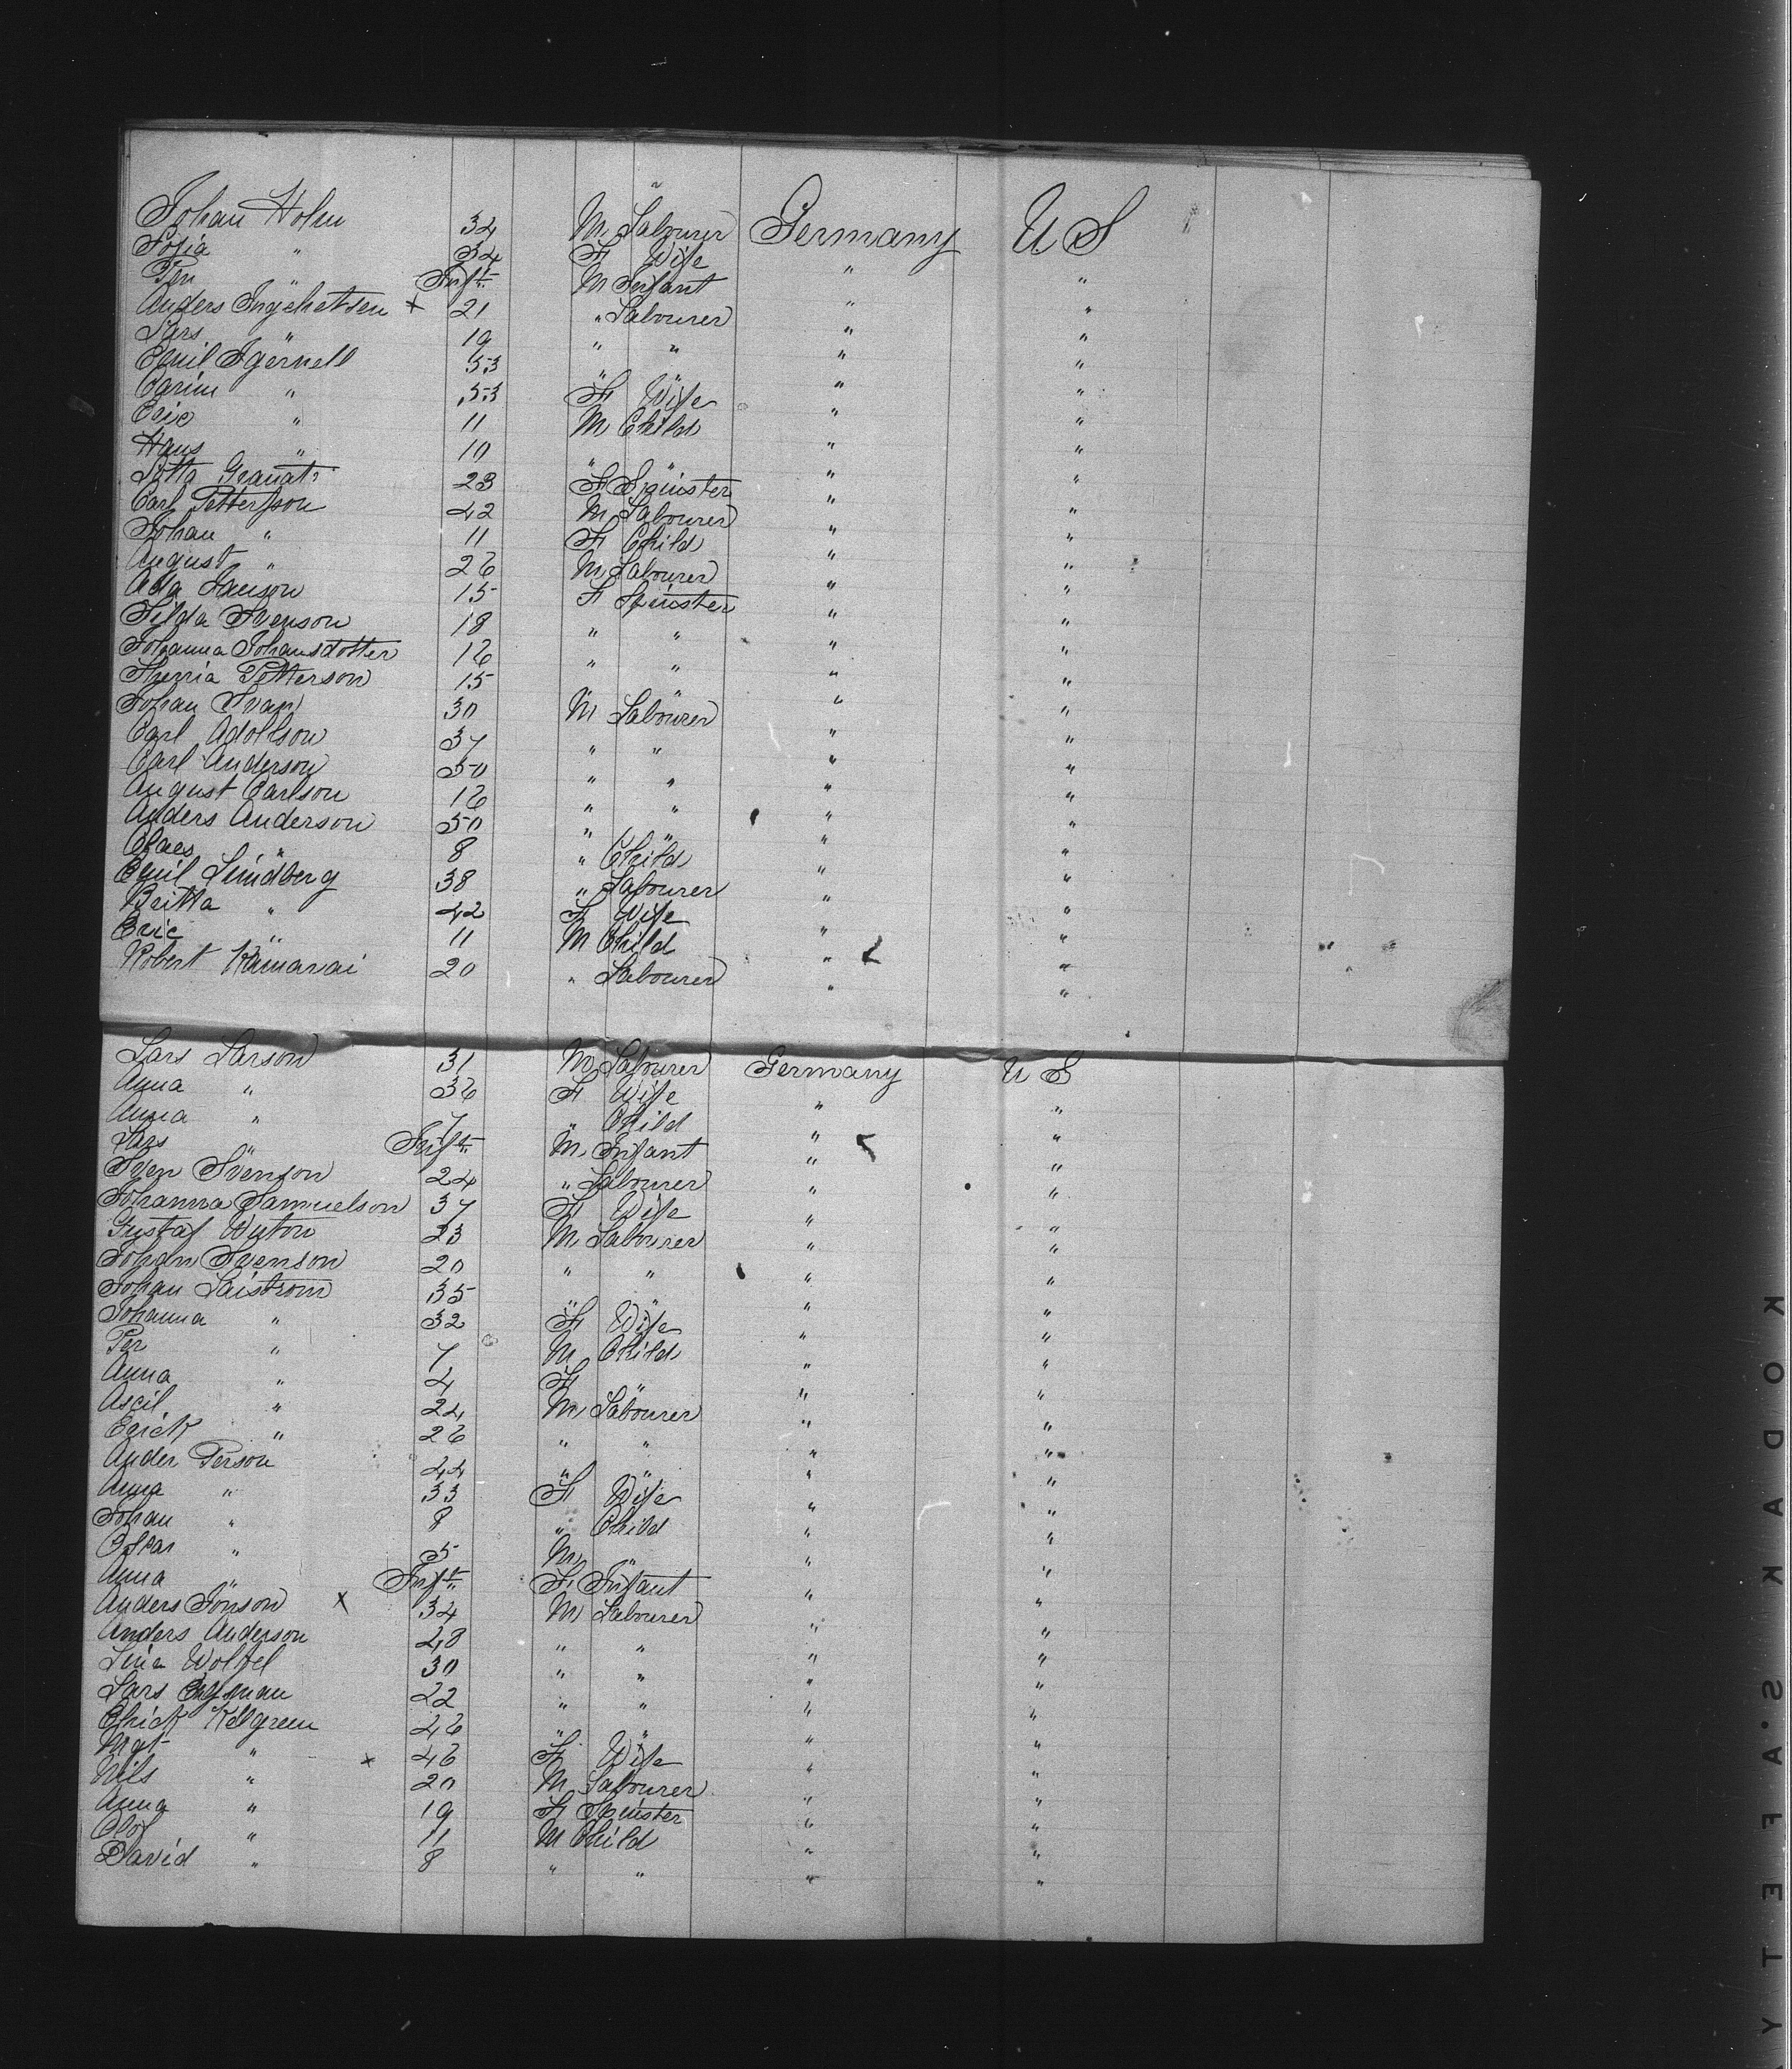 Johan Holm 34 M Labourer Germany U S
Sofia " 34 F Wife " "
Per " Inft M Infant " "
Anders Ingebretsen x 21 " Labourer " "
Lars " 19 " " " "
Emil Igernell 53 " " " "
Carin " 53 F Wife " "
Eric " 11 M Child " "
Hans " 10 " " " "
Lotta Granat 23 F Spinster " "
Carl Petterson 42 M Labourer " "
Johan " 11 F Child " "
August " 26 M Labourer " "
Ada Janson 15 F Spinster " "
Hilda Svenson 18 " " " "
Johanna Johansdotter 16 " " " "
Petterson 15 " " " "
Johan Svan 30 M Labourer " "
Carl Adolfson 37 " " " "
Carl Anderson 50 " " " "
August Carlson 16 " " " "
Anders Anderson 50 " " " "
Claes " 8 " Child " "
Emil Lindberg 38 " Labourer " "
Britta " 42 F Wife " "
Eric " 11 M Child " "
Robert 20 " Labourer " "
Lars Larson 31 M Labourer Germany U S
Anna " 36 F Wife " "
Anna " 7 " Child " "
Lars " Inft M Infant " "
Sven Svenson 24 " Labourer " "
Johanna Samuelson 37 F Wife " "
Gustaf 23 M Labourer " "
Johan Svenson 20 " " " "
Johan Laistrom 35 " " " "
Johanna " 32 F Wife " "
Per " 7 M Child " "
Anna " 4 F " " "
" 24 M Labourer " "
Erick " 26 " " " "
Ander Person 44 " " " "
Anna " 33 F Wife " "
Johan " 8 " Child " "
Oskar " 5 M " " "
Anna " Inft F Infant " "
Anders Jonson x 34 M Labourer " "
Anders Anderson 28 " " " "
Lina 30 " " " "
Lars 22 " " " "
Kelgreen 46 " " " "
Mgt " x 46 F Wife " "
Nils " 20 M Labourer " "
Anna " 19 F Spinster " "
Olof " 11 M Child " "
David " 8 " " " "
KODAK S.A.F.E.T.Y